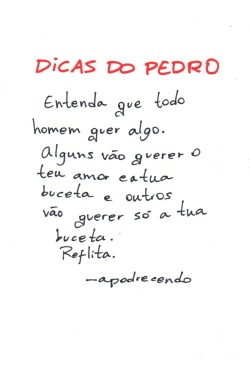 DICAS DO PEDRO
Entenda que todo
homem quer algo.
Alguns vão querer o
teu amor e a tua
buceta e outros
vão querer só a tua
buceta.
Reflita.
—apodrecendo